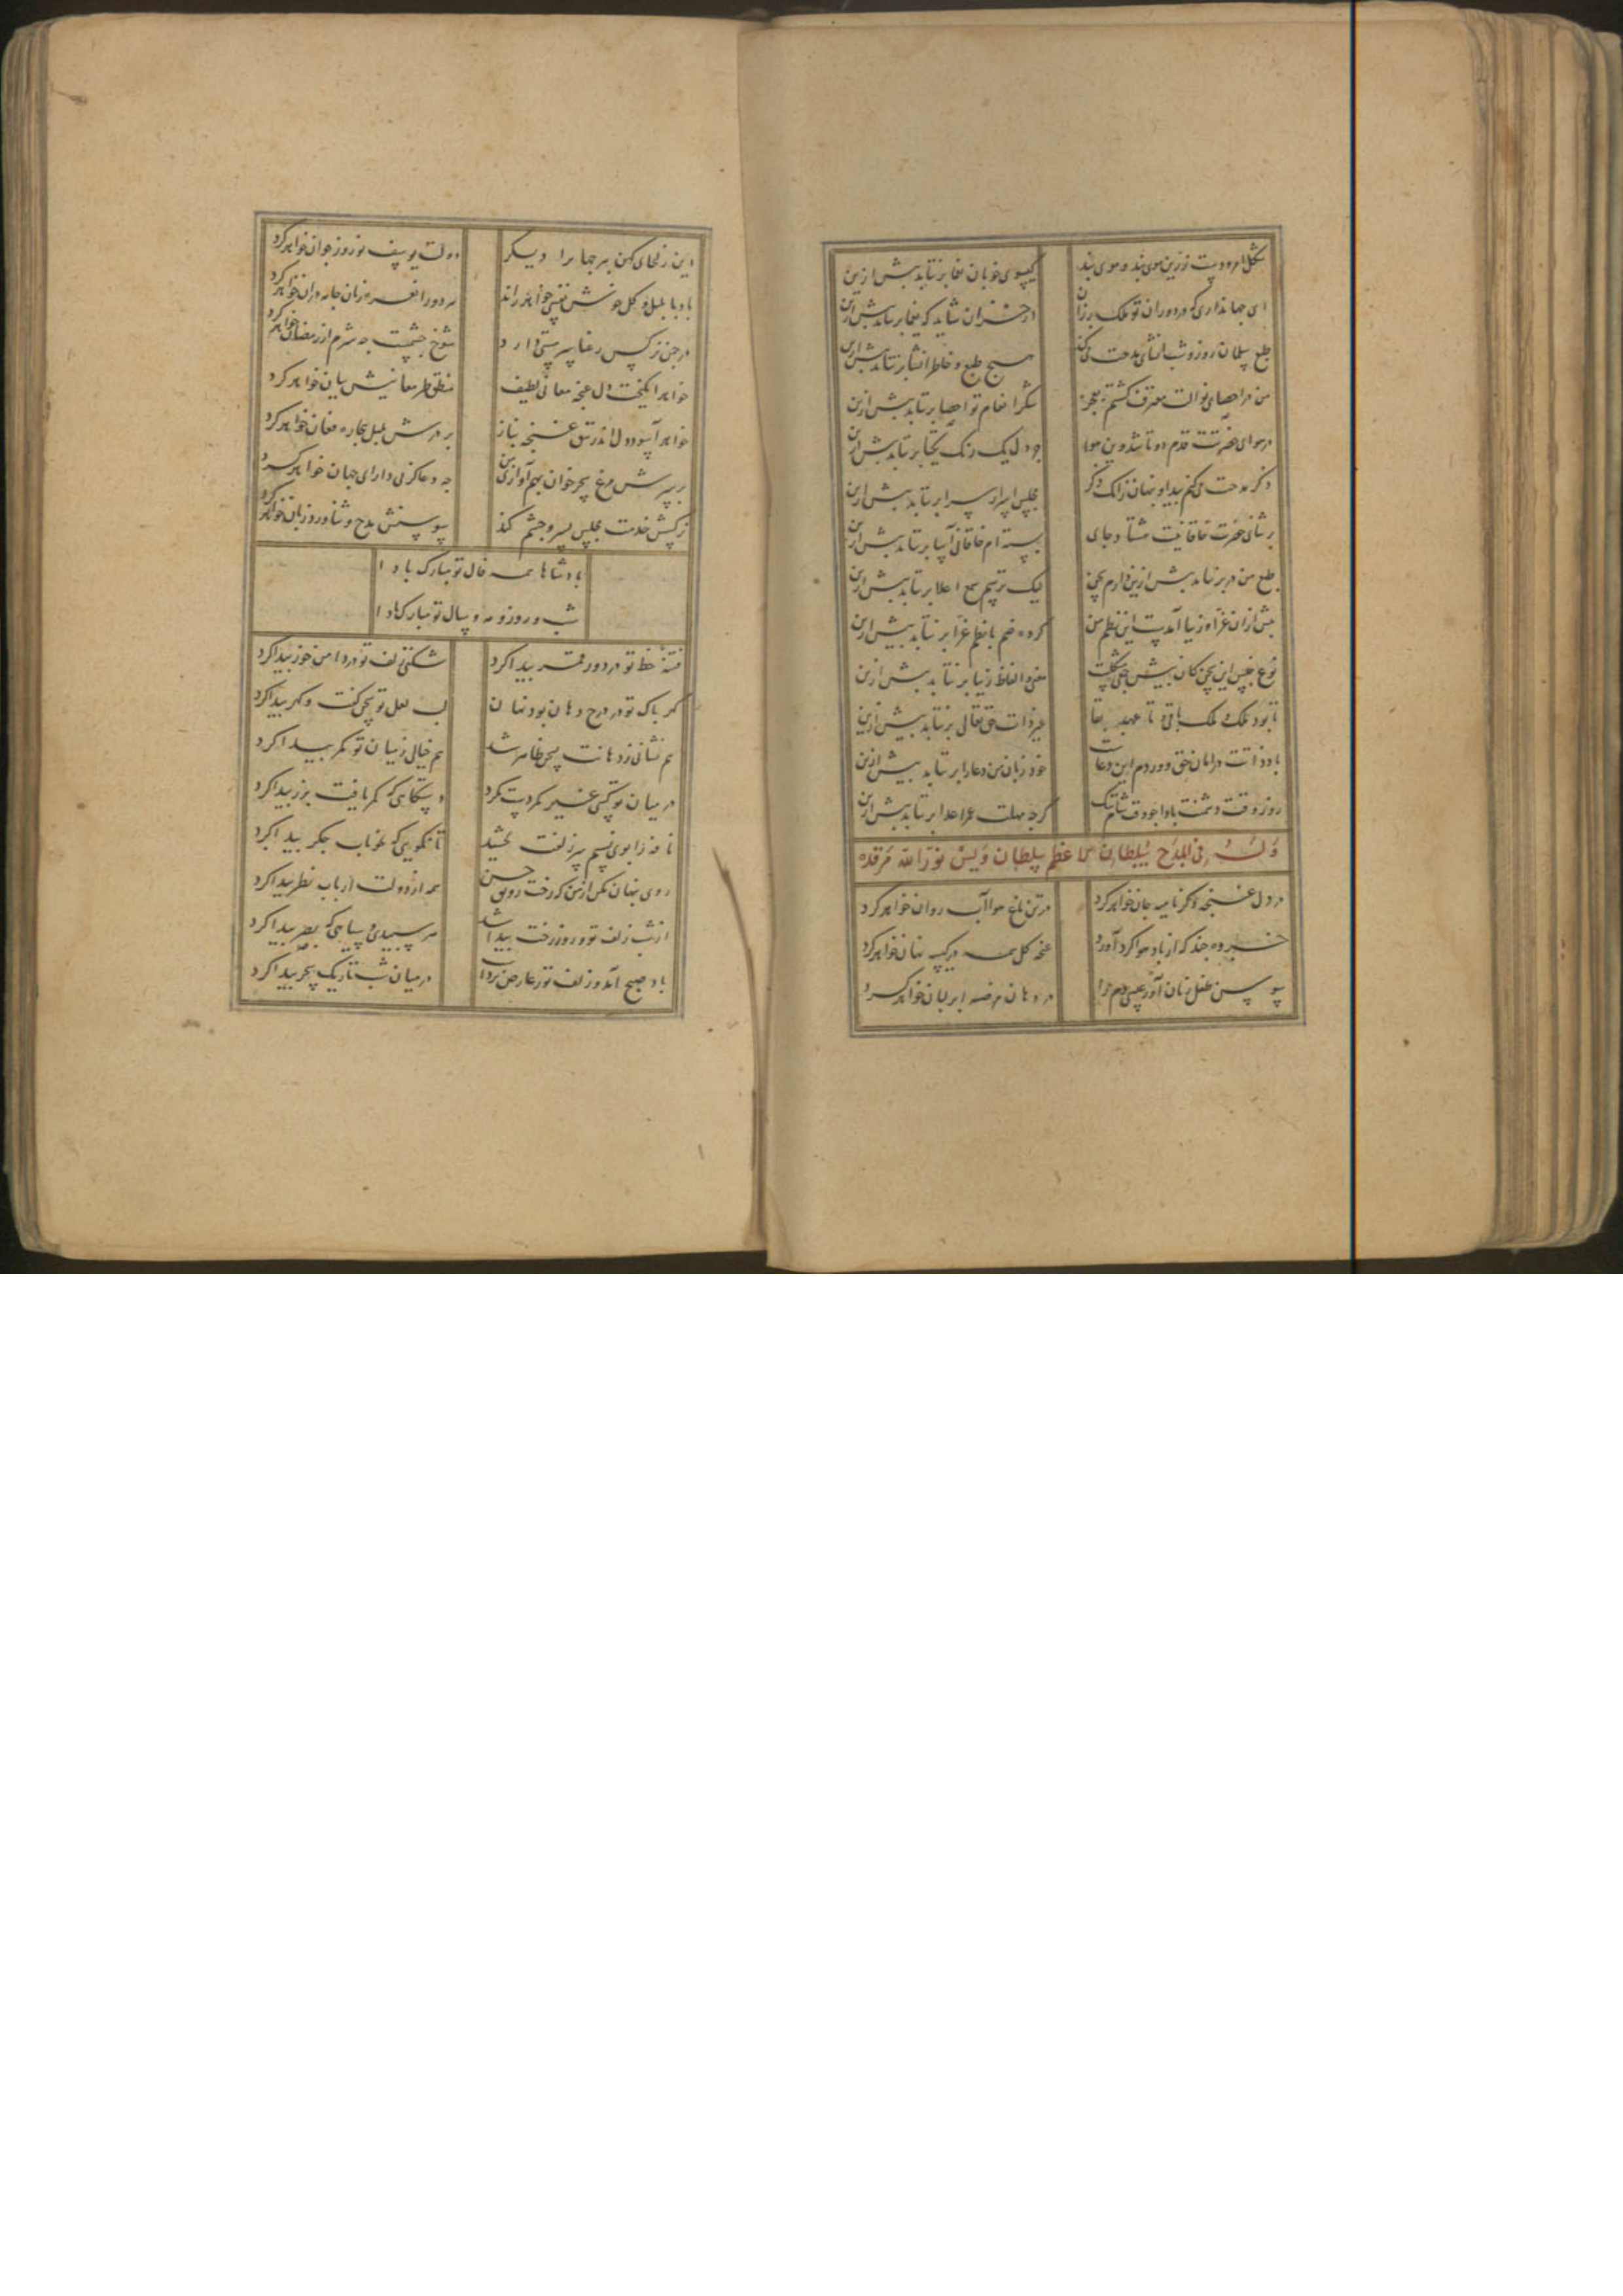 شکل امرودست زرین موی بند و موی بند
گیسوی خوبان یغما برنتابد بیش ازین
ای جهانداری که در دوران تو ملک رزان
در خزان شاید که یغما برنتابد بیش ازین
طبع سلمان روز و شب انشای مدحت می‌کند
هیچ طبع و خاطر انشا برنتابد بیش ازین
من در احصای نوالت معترف گشتم بعجز
شکر انعام تو احصا برنتابد بیش ازین
در هوای حضرتت قدم دو تا شد وین هوا
جز دل یک رنگ یکتا برنتابد بیش ازین
ذکر مدحت می‌کنم پیدا و پنهان زانک ذکر
مجلس اسرار
برنتابد بیش ازین
بر ثنای حضرت خاقانیت
و جای
بسته‌ام خاقانی آسا برنتابد بیش ازین
طبع من در بر نتابد بیش ازین دارم سخن
لیک ترسم سمع اعلا برنتابد بیش ازین
بیش ازان غرا و زیبا آمدست این نظم من
کرده ضم با نظم غرا برنتابد بیش ازین
نوع جنس این سخن کان بیش
معنی و الفاظ زیبا برنتابد بیش ازین
تا بود ملک و ملک باقی و تا عهد بقا
غیر ذات حق تعالی برنتابد بیش ازین
باد ذاتت در امان حق و وردم این دعاست
خود زبان من دعا را برنتابد بیش ازین
روز وقت دشمنت بادا
گرچه مهلت عمر اعدا برنتابد بیش ازین
وله فی المدح سلطان الاعظم سلطان ویس نورالله مرقده
در دل غنچه دگر نامیه جان خواهد کرد
در تن باغ هوا آب روان خواهد کرد
خرده چند که از باد هوا گرد آورد
غنچه گل همه در کیسه نهان خواهد کرد
سوسن طفل زبان آور عیسی دم را
در دهان مرضعه ابر لبان خواهد کرد
این زلیخای کهن پیر جهانرا دیگر
دولت یوسف نوروز جوان خواهد کرد
باد با بلبل و گل خوش نفسی خواهد راند
در چمن نرگس رعنا سر مستی دارد
شوخ چشمست چه شرم از رمضان خواهد کرد
خواهد انگیخت دل غنچه معانی لطیف
منطق طیر معانیش بیان خواهد کرد
خواهد آسود دل اندر تتق غنچه بناز
بر درش بلبل بیچاره فغان خواهد کرد
بر سرش مرغ سحرخوان بهم آوازی من
چه دعا کز پی دارای جهان خواهد کرد
نرگسش خدمت مجلس بسر و چشم کند
سوسنش مدح و ثنا ورد زبان خواهد کرد
پادشاها همه فال تو مبارک بادا
شب و روز و مه و سال تو مبارک بادا
فتنه خط تو در دور قمر پیدا کرد
شکنی زلف تو در دامن خور پیدا کرد
گهر پاک تو در درج دهان بود نهان
لب لعل تو سخن گفت و گهر پیدا کرد
هم نشانی ز دهانت سخن ظاهر شد
هم خیالی ز میان تو کمر پیدا کرد
در میان تو کسی غیر کمر دست نکرد
دستگاهی که کمر یافت بزر پیدا کرد
نافه را بوی نسیم سر زلفت بخشید
تا نگویی که بخوناب جگر پیدا کرد
روی پنهان مکن از من که رخت رونق حسن
همه از دولت ارباب نظر پیدا کرد
از شب زلف تو و روز رخت پیدا شد
هر سپیدی و سیاهی که بصر پیدا کرد
باد صبح آمد و زلف تو ز عارض برداشت
در میان شب تاریک سحر پیدا کرد